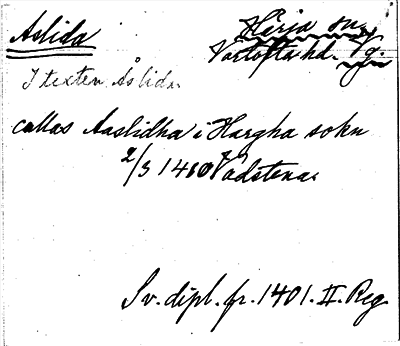 Aslida
Härja sn,
Vartofta hd. Vg.
I texten Åslida.
callas Aaslidha i Hargha sokn
2/3 1410 Vadstena.
Sv. dipl. fr. 1401. II. Reg